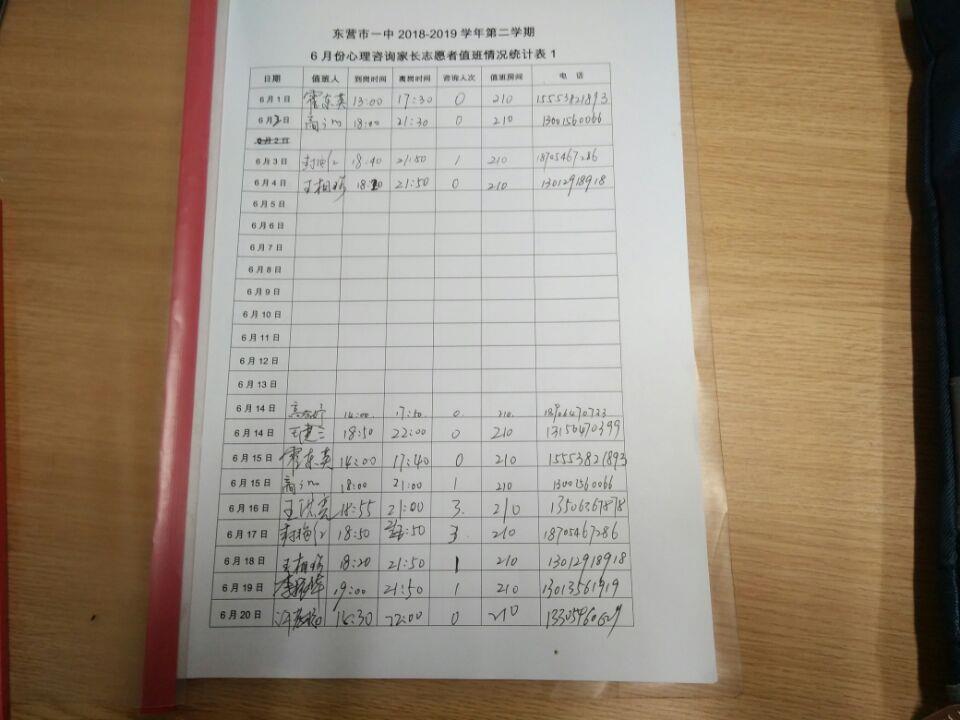 东营市一中 2018-2019 学年第二学期
6 月份心理咨询家长志愿者值班情况统计表 1
日期 值班人 到岗时间 离岗时间 咨询人次 值班房间 电 话
6 月 1 日 霍东英 13:00 17:30 0 210 15553821893
6 月 2 日 18:00 21:30 0 210 13001560066
6 月 2 日
6 月 3 日 18:40 21:50 1 210 18705467286
6 月 4 日 王相珍 21:50 0 210 13012918918
6 月 5 日
6 月 6 日
6 月 7 日
6 月 8 日
6 月 9 日
6 月 10 日
6 月 11 日
6 月 12 日
6 月 13 日
6 月 14 日 14:00 17:50 0 210
6 月 14 日 王建三 18:50 22:00 0 210 13156470399
6 月 15 日 霍东英 14:00 17:40 0 210 15553821893
6 月 15 日 18:00 21:00 1 210 13001560066
6 月 16 日 18:55 21:00 3 210 13506367878
6 月 17 日 18:50 3 210 18705467286
6 月 18 日 王相珍 18:20 21:50 1 210 13012918918
6 月 19 日 19:00 21:50 1 210 13013561919
6 月 20 日 22:00 0 210